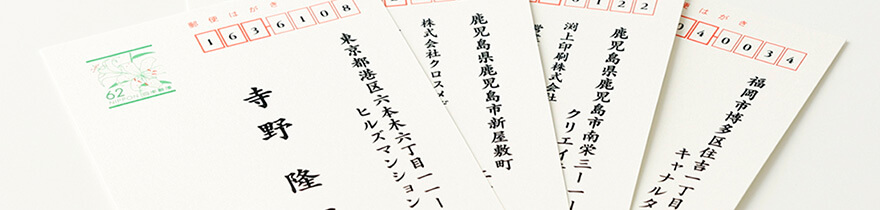 郵便はがき
1636108
62
NIPPON 日本郵便
東京都港区六本木六丁目一一-
ヒルズマンション
寺野 隆
株式会社クロスメ
鹿児島県鹿児島市新屋敷町
0122
鹿児島県鹿児島市南栄三-一-
渕上印刷株式
営
クリエイ
便はがき
40034
福岡市博多区住吉一丁目
キャナルタ